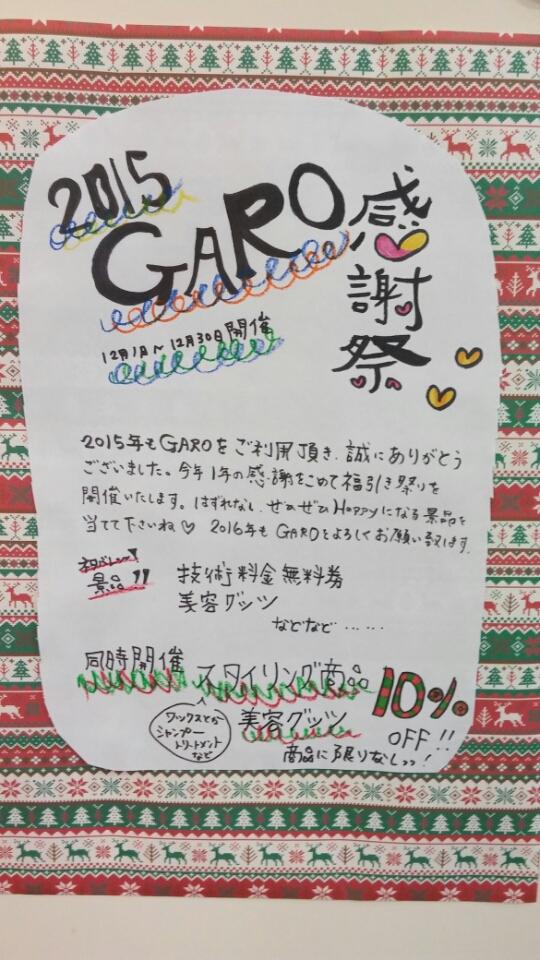 2015
GARO
感謝祭
12月1日～12月30日開催
2015年もGAROをご利用頂き、誠にありがとう
ございました。今年1年の感謝をこめて福引き祭りを
開催いたします。はずれなし、ぜひぜひHappyになる景品を
当てて下さいね♡ 2016年もGAROをよろしくお願い致します。
ネタバレ
景品
技術料金無料券
美容グッツ
などなど……
同時開催 スタイリング商品
美容グッツ
10%
OFF!!
ワックスとか
シャンプー
トリートメント
など
商品に限りなしっ!